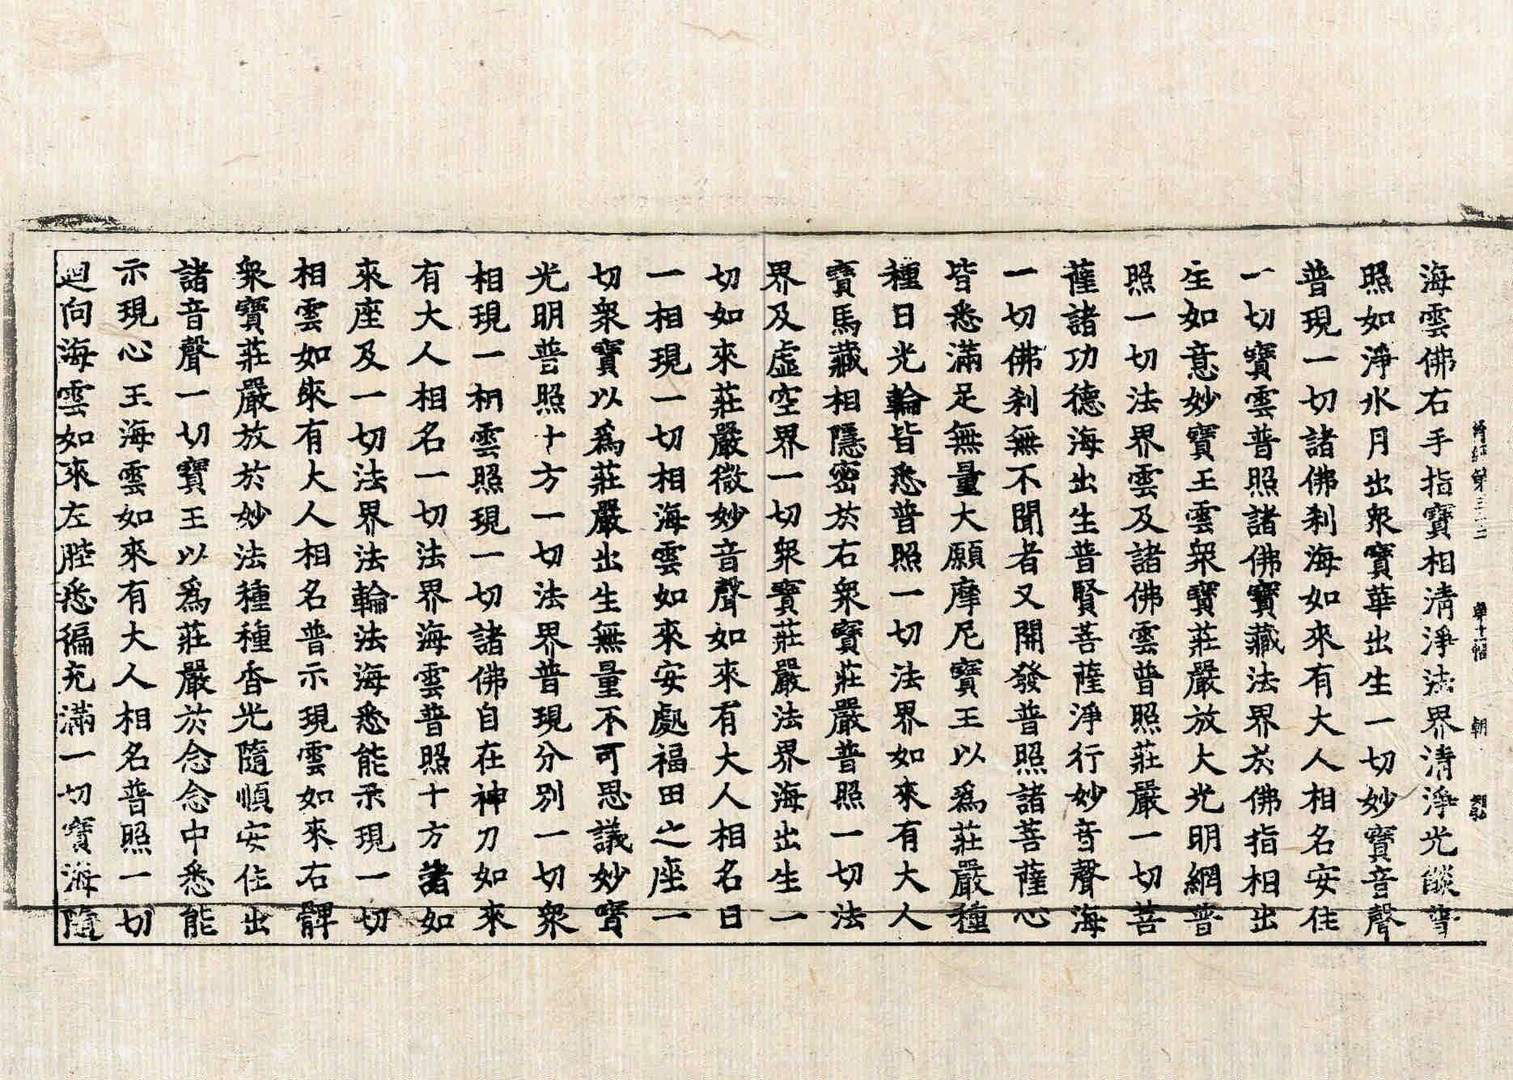 經第三十二 十一幅 朝
海雲佛右手指寶相清淨法界清淨光燄普
照如淨水月出衆寶華出生一切妙寶音聲
普現一切諸佛刹海如來有大人相名安住
一切寶雲普照諸佛寶藏法界於佛指相出
生如意妙寶王雲衆寶莊嚴放大光明網普
照一切法界雲及諸佛雲普照莊嚴一切菩
薩諸功德海出生普賢菩薩淨行妙音聲海
一切佛刹無不聞者又開發普照諸菩薩心
皆悉滿足無量大願摩尼寶王以爲莊嚴種
種日光輪皆悉普照一切法界如來有大人
寶馬藏相隱密於右衆寶莊嚴普照一切法
界及虛空界一切衆寶莊嚴法界海出生一
切如來莊嚴微妙音聲如來有大人相名日
一相現一切相海雲如來安處福田之座一
切衆寶以爲莊嚴出生無量不可思議妙寶
光明普照十方一切法界普現分別一切衆
相現一相雲照現一切諸佛自在神力如來
有大人相名一切法界海雲普照十方諸如
來座及一切法界法輪法海悉能示現一切
相雲如來有大人相名普示現雲如來右髀
衆寶莊嚴放於妙法種種香光隨順安住出
諸音聲一切寶王以爲莊嚴於念念中悉能
示現心王海雲如來有大人相名普照一切
迴向海雲如來左䏶悉徧充滿一切寶海隨